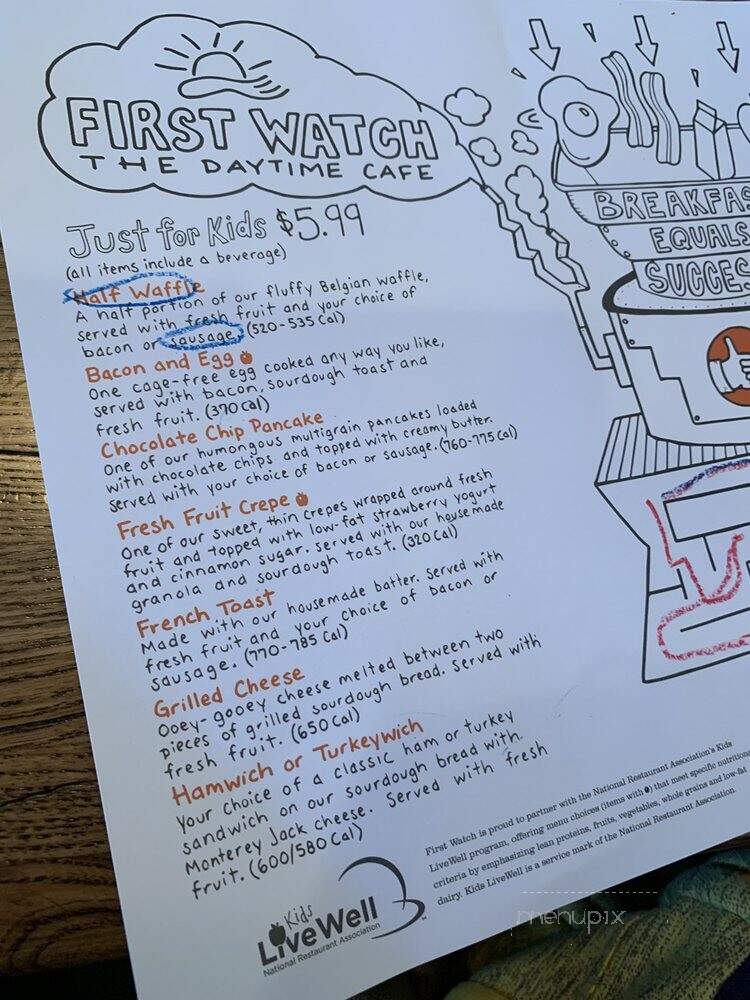 FIRST WATCH
THE DAYTIME CAFE
Just for Kids $5.99
(all items include a beverage)
Half Waffle
A half portion of our fluffy Belgian waffle,
served with fresh fruit and your choice of
bacon or sausage. (520-535 Cal)
Bacon and Egg
One cage-free egg cooked any way you like,
served with bacon, sourdough toast and
fresh fruit. (370 Cal)
Chocolate Chip Pancake
One of our humongous multigrain pancakes loaded
with chocolate chips and topped with creamy butter.
Served with your choice of bacon or sausage. (760-775 Cal)
Fresh Fruit Crepe
One of our sweet, thin crepes wrapped around fresh
fruit and topped with low-fat strawberry yogurt
and cinnamon sugar. Served with our housemade
granola and sourdough toast. (320 Cal)
French Toast
Made with our housemade batter. Served with
fresh fruit and your choice of bacon or
sausage. (770-785 Cal)
Grilled Cheese
Ooey-gooey cheese melted between two
pieces of grilled sourdough bread. Served with
fresh fruit. (650 Cal)
Hamwich or Turkeywich
Your choice of a classic ham or turkey
sandwich on our sourdough bread with
Monterey Jack cheese. Served with fresh
fruit. (600/580 Cal)
BREAKFAS
EQUALS
SUCCES
Kids
LiveWell
National Restaurant Association
First Watch is proud to partner with the National Restaurant Association's Kids
LiveWell program, offering menu choices (items with ) that meet specific nutritiona
criteria by emphasizing lean proteins, fruits, vegetables, whole grains and low-fat
dairy. Kids LiveWell is a service mark of the National Restaurant Association.
menupix